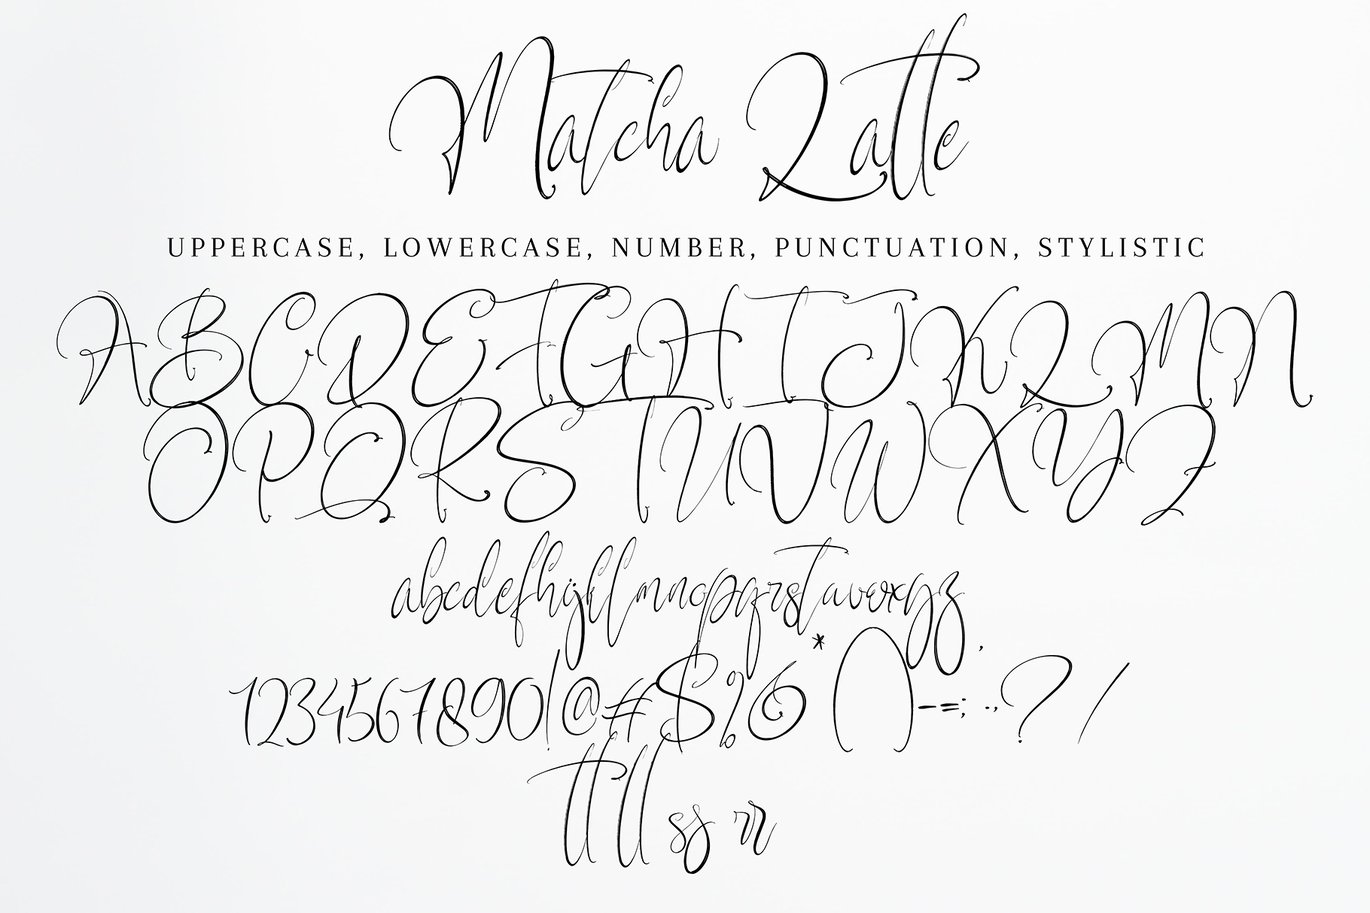 Matcha Latte
UPPERCASE, LOWERCASE, NUMBER, PUNCTUATION, STYLISTIC
ABCDEFGHIJKLMN
OPQRSTUVWXYZ
abcdefghijklmnopqrstuvwxyz
1234567890!@#$%&*()-–=;:.,?/
tt ll ss rr